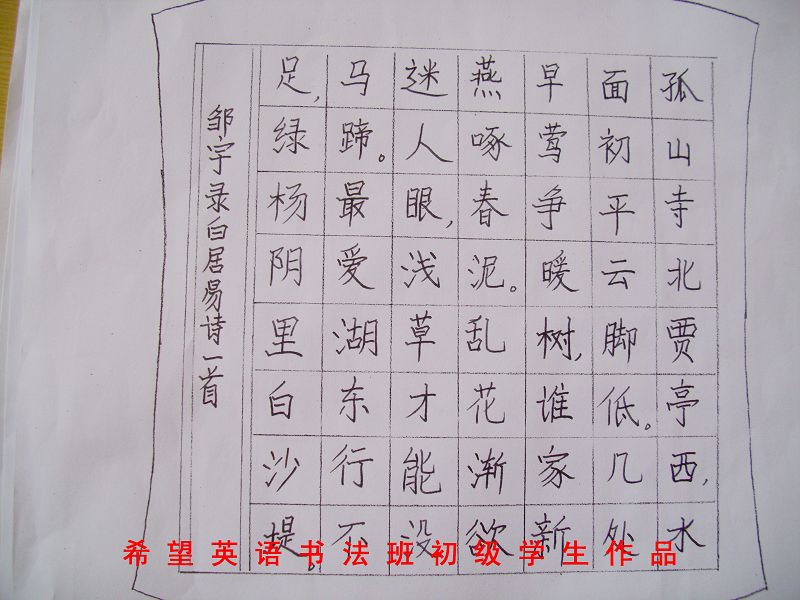 孤山寺北贾亭西,水
面初平云脚低。几处
早莺争暖树,谁家新
燕啄春泥。乱花渐欲
迷人眼,浅草才能没
马蹄。最爱湖东行不
足,绿杨阴里白沙堤。
邹宇录白居易诗一首
希望英语书法班初级学生作品